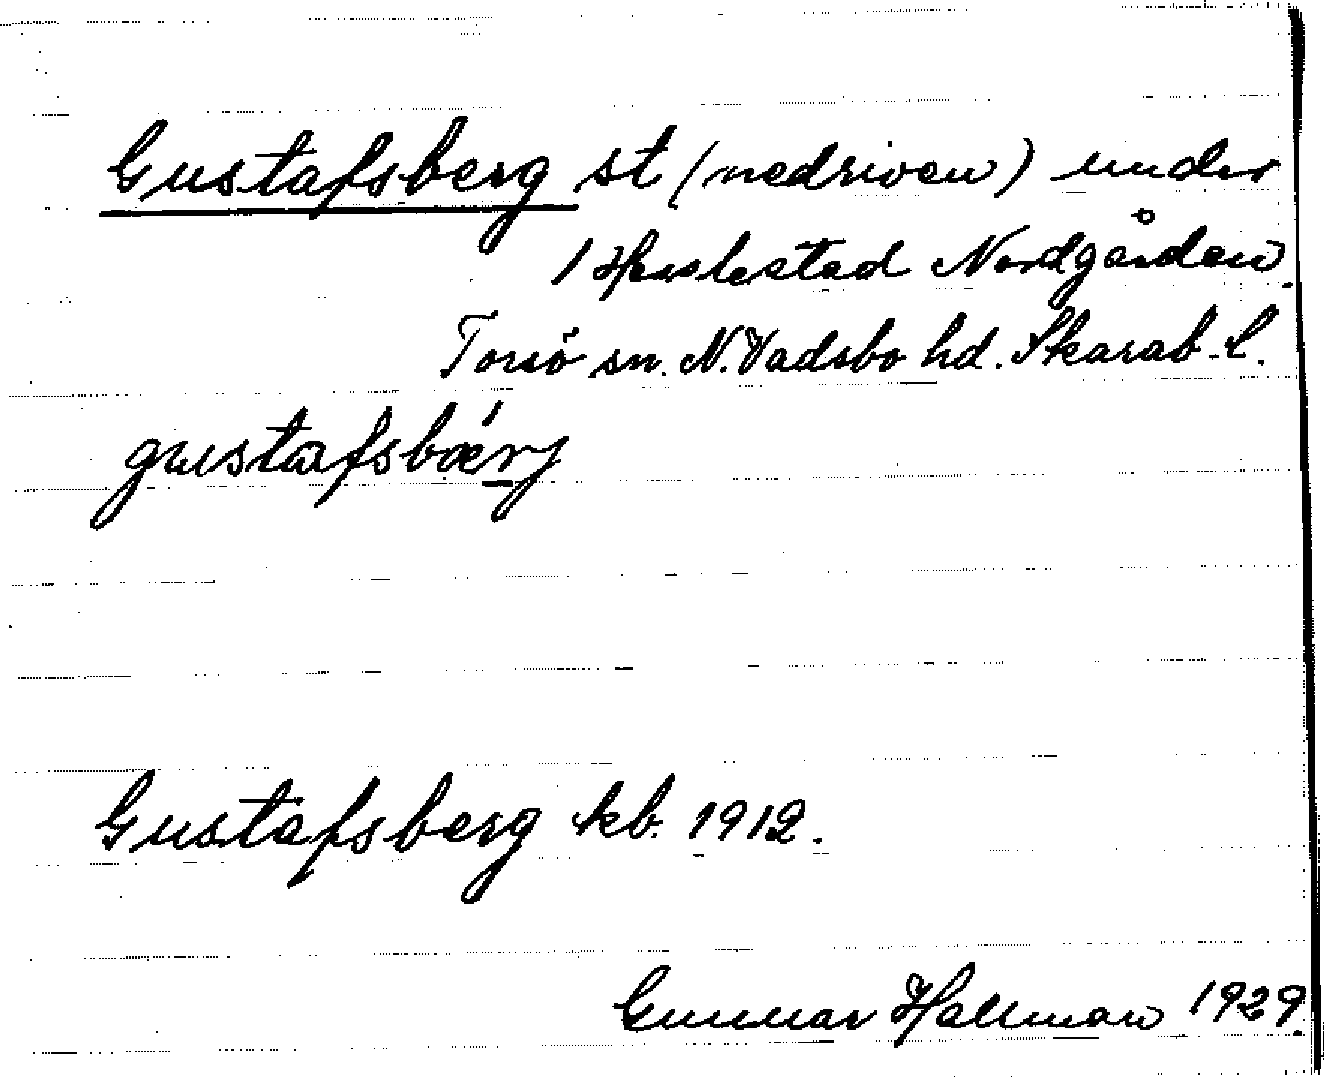 Gustafsberg st (nedriven) under
1 Haslestad Nordgården
Torsö sn. N. Vadsbo hd. Skarab. L.
gustafsbærj
Gustafsberg kb. 1912.
Gunnar Hallman 1929.